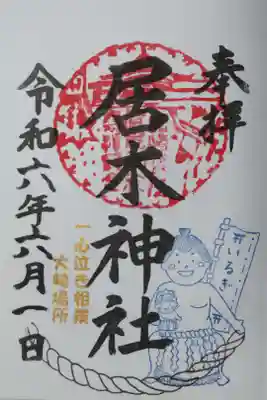 奉拝
居木神社
一心泣き相撲
大崎場所
いるぎ
令和六年六月一日